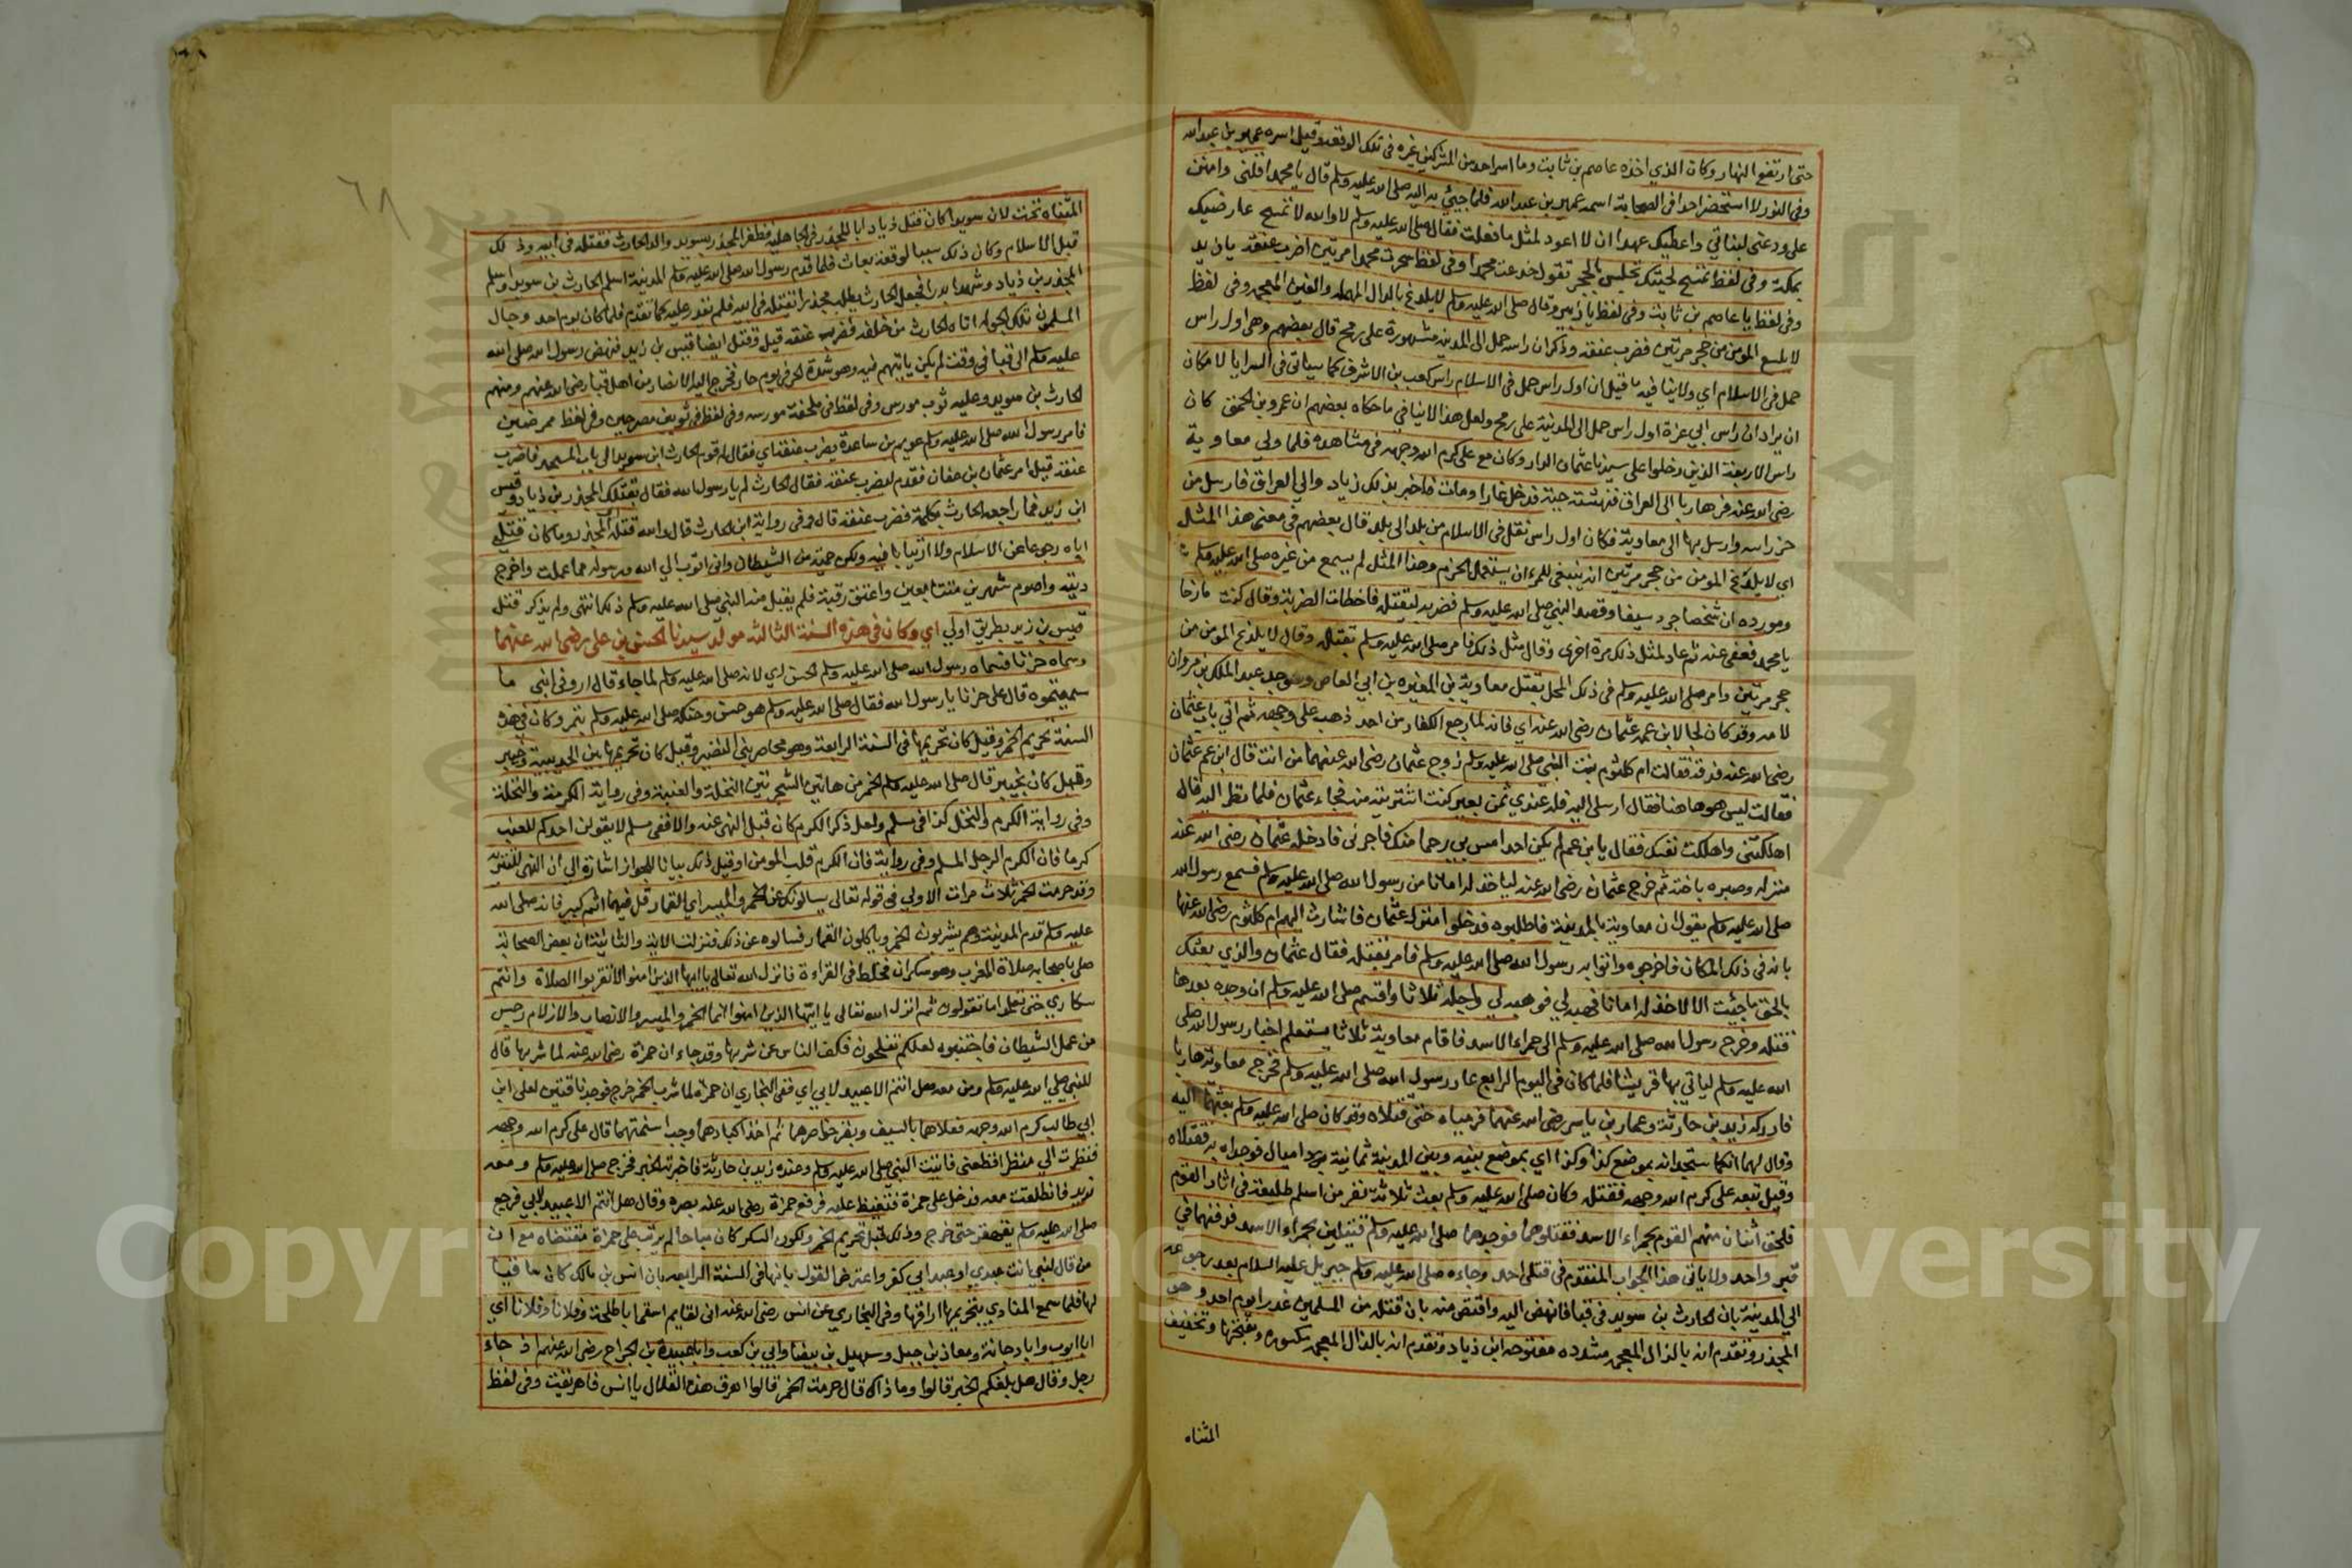 حتى ارتفع النهار وكان الذي اخذه عاصم بن ثابت وما اسر احد من المشركين غيره في تلك الوقعة وقيل اسره عمير بن عبد الله
وفي النور لا استحضر احدا في الصحابة اسمه عمير بن عبد الله فلما جيئ به اليه صلى الله عليه وسلم قال يا محمد اقلني وامنن
على ودعني لبناتي واعطيك عهدا ان لا اعود لمثل ما فعلت فقال صلى الله عليه وسلم لا والله لا تمسح عارضيك
بمكة وفي لفظ تمسح لحيتك تجلس بالحجر تقول خدعت محمدا وفي لفظ سحرت محمدا مرتين اضرب عنقه يا زيد
وفي لفظ يا عاصم بن ثابت وفي لفظ يا زبير وقال صلى الله عليه وسلم لا يلدغ بالدال المهملة والغين المعجمة وفي لفظ
لا يلسع المومن من جحر مرتين فضرب عنقه وذكر ان راسه حمل الى المدينة مشهورة على رمح قال بعضهم وهي اول راس
حمل في الاسلام اي ولا ينافيه ما قيل ان اول راس حمل في الاسلام راس كعب بن الاشرف كما سياتي في السرايا لامكان
ان يراد ان راس ابي عزة اول راس حمل الى المدينة على رمح ولعل هذا لا ينافي ما حكاه بعضهم ان عمرو بن الحمق كان
راس الاربعة الذين دخلوا على سيدنا عثمان الدار وكان مع على كرم الله وجهه في مشاهده فلما ولي معاوية
رضي الله عنه فر هاربا الى العراق فنهشته حية فدخل غارا ومات فاخبر بذلك زياد والي العراق فارسل من
حز راسه وارسل بها الى معاوية فكان اول راس نقل في الاسلام من بلد الى بلد قال بعضهم في معنى هذا المثل
اي لا يلدغ المومن من جحر مرتين انه ينبغي للمرء ان يستعمل الحزم وهذا المثل لم يسمع من غيره صلى الله عليه وسلم
ومورده ان شخصا جرد سيفا وقصد النبي صلى الله عليه وسلم فضربه ليقتله فاخطات الضربة وقال كنت مازحا
يا محمد فعفى عنه ثم عاد لمثل ذلك مرة اخرى وقال مثل ذلك فامر صلى الله عليه وسلم بقتله وقال لا يلدغ المومن من
جحر مرتين وامر صلى الله عليه وسلم في ذلك المحل بقتل معاوية بن المغيرة بن ابي العاص وهو جد عبد الملك بن مروان
لامه وقد كان لجا لابن عمه عثمان رضي الله عنه اي فانه لما رجع الكفار من احد ذهب على وجهه ثم اتي باب عثمان
رضى الله عنه فدقه فقالت ام كلثوم بنت النبي صلى الله عليه وسلم زوج عثمان رضى الله عنهما من انت قال ابن عم عثمان
فقالت ليس هو هاهنا فقال ارسلي اليه فله عندي ثمن بعير كنت اشتريته منه فجاء عثمان فلما نظر اليه قال
اهلكتني واهلكت نفسك فقال يا بن عم لم يكن احد امس بي رحما منك فاجرني فادخله عثمان رضى الله عنه
منزله وصيره باخته ثم خرج عثمان رضى الله عنه لياخذ له امانا من رسول الله صلى الله عليه وسلم فسمع رسول الله
صلى الله عليه وسلم يقول ان معاوية بالمدينة فاطلبوه فدخلوا منزل عثمان فاشارت اليهم ام كلثوم رضى الله عنها
بانه في ذلك المكان فاخرجوه واتوا به رسول الله صلى الله عليه وسلم فامر بقتله فقال عثمان والذي بعثك
بالحق ما جئت الا لاخذ له امانا فهبه لي فوهبه لي واجله ثلاثا واقسم صلى الله عليه وسلم ان وجده بعدها
قتله وخرج رسول الله صلى الله عليه وسلم الى حمراء الاسد فاقام معاوية ثلاثا يستعلم اخبار رسول الله صلى
الله عليه وسلم لياتي بها قريشا فلما كان في اليوم الرابع عاد رسول الله صلى الله عليه وسلم فخرج معاوية هاربا
فادركه زيد بن حارثة وعمار بن ياسر رضى الله عنهما فرمياه حتى قتلاه وقد كان صلى الله عليه وسلم بعثهما اليه
وقال لهما انكما ستجدانه بموضع كذا وكذا اي بموضع بينه وبين المدينة ثمانية اميال فوجداه به فقتلاه
وقيل تبعه على كرم الله وجهه فقتله وكان صلى الله عليه وسلم بعث ثلاثة نفر من اسلم طليعة في اثار القوم
فلحق اثنان منهم القوم بحمراء الاسد فقتلوهما فوجدهما صلى الله عليه وسلم قتيلين بحمراء الاسد فدفنهما في
قبر واحد ولا ياتي هذا الجواب المتقدم في قتلى احد وجاءه صلى الله عليه وسلم جبريل عليه السلام بعد رجوعه
الي المدينة بان الحارث بن سويد في قبا فانهض اليه واقتص منه بان قتله من المسلمين غدرا يوم احد وهو
المجذر وتقدم انه بالذال المعجمة مشددة مفتوحة ابن ذياد وتقدم انه بالذال المعجمة مكسورة وبفتحها وتخفيف
المثناه
٦٨
المثناه تحت لان سويدا كان قتل ذياد ابا المجذر في الجاهلية فظفر المجذر بسويد والد الحارث فقتله في ابيه وذلك
قبل الاسلام وكان ذلك سببا لوقعة بعاث فلما قدم رسول الله صلى الله عليه وسلم المدينة اسلم الحارث بن سويد واسلم
المجذر بن ذياد وشهدا بدرا فجعل الحارث يطلب مجذرا ليقتله في ابيه فلم يقدر عليه كما تقدم فلما كان يوم احد وجال
المسلمون تلك الجولة اتاه الحارث من خلفه فضرب عنقه قيل وقتل ايضا قيس بن زيد فنهض رسول الله صلى الله
عليه وسلم الى قبا في وقت لم يكن ياتيهم فيه وهو شدة الحر في يوم حار فخرج اليه الانصار من اهل قبا رضى الله عنهم ومنهم
الحارث بن سويد وعليه ثوب مورس وفي لفظ في ملحفة مورسه وفي لفظ في ثوبين مضرجين وفي لفظ ممرضين
فامر رسول الله صلى الله عليه وسلم عويمر بن ساعدة بضرب عنقه اي فقال له قدم الحارث ابن سويد الى باب المسجد فاضرب
عنقه قيل امر عثمان بن عفان فقدم ليضرب عنقه فقال الحارث لم يا رسول الله فقال بقتلك المجذر بن ذياد وقيس
ابن زيد فما راجعه الحارث بكلمة فضرب عنقه قال وفي رواية ابن الحارث قال والله قتلت المجذر وما كان قتلي
اياه رجوعا عن الاسلام ولا ارتيابا فيه ولكن حمية من الشيطان واني اتوب الي الله ورسوله مما عملت واخرج
ديته واصوم شهرين متتابعين واعتق رقبة فلم يقبل منه النبي صلى الله عليه وسلم ذلك انتهى ولم يذكر قتل
قيس بن زيد بطريق اولي اي وكان في هذه السنة الثالثة مولد سيدنا الحسن بن علي رضي الله عنهما
وسماه حربا فسماه رسول الله صلى الله عليه وسلم الحسن اي لانه صلى الله عليه وسلم لما جاء قال اروني ابني ما
سميتموه قال علي حربا يا رسول الله فقال صلى الله عليه وسلم هو حسن وحنكه صلى الله عليه وسلم بتمر وكان في هذه
السنة تحريم الخمر وقيل كان تحريمها في السنة الرابعة وهو محاصر بني النضير وقيل كان تحريمها بين الحديبية وخيبر
وقيل كان بخيبر قال صلى الله عليه وسلم الخمر من هاتين الشجرتين النخلة والعنبة وفي رواية الكرمة والنخلة
وفي رواية الكرم والنخل كذا في مسلم ولعل ذكر الكرم كان قبل النهي عنه والا ففي مسلم لا يقولن احدكم للعنب
كرما فان الكرم الرجل المسلم وفي رواية فان الكرم قلب المومن او قيل ذلك بيانا للجواز اشارة الي ان النهي للتنزيه
وقد حرمت الخمر ثلاث مرات الاولي في قوله تعالى يسالونك عن الخمر والميسر اي القمار قل فيهما اثم كبير فانه صلى الله
عليه وسلم قدم المدينة وهم يشربون الخمر وياكلون القمار فسالوه عن ذلك فنزلت الاية والثانية ان بعض الصحابة
صلى باصحابه صلاة المغرب وهو سكران فخلط في القراءة فانزل الله تعالى يا ايها الذين امنوا لا تقربوا الصلاة وانتم
سكارى حتى تعلموا ما تقولون ثم انزل الله تعالى يا ايها الذين امنوا انما الخمر والميسر والانصاب والازلام رجس
من عمل الشيطان فاجتنبوه لعلكم تفلحون فكف الناس عن شربها وقد جاء ان حمزة رضى الله عنه لما شربها قال
للنبي صلى الله عليه وسلم ومن معه هل انتم الا عبيد لابي اي ففي البخاري ان حمزة لما شرب الخمر خرج فوجد ناقتين لعلي ابن
ابي طالب كرم الله وجهه فعلاهما بالسيف وبقر خواصرهما ثم اخذ اكبادهما وجب اسنمتهما قال على كرم الله وجهه
فنظرت الي منظر افظعني فاتيت النبي صلى الله عليه وسلم وعنده زيد بن حارثة فاخبرته الخبر فخرج صلى الله عليه وسلم ومعه
زيد فانطلقت معه فدخل على حمزة فتغيظ عليه فرفع حمزة رضى الله عنه بصره وقال هل انتم الا عبيد لابي فرجع
صلى الله عليه وسلم يقهقر حتى خرج وذلك قبل تحريم الخمر ولكون السكر كان مباحا لم يرتب على حمزة مقتضاه مع ان
من قال لنبي انت عبدي او عبد ابي كفر واعترض القول بانها في السنة الرابعة بان انس بن مالك كان ساقيا
لها فلما سمع المنادي بتحريمها اراقها وفي البخاري عن انس رضى الله عنه اني لقايم اسقي ابا طلحة وفلانا وفلانا اي
ابا ايوب وابا دجانة ومعاذ بن جبل وسهيل بن بيضا وابي بن كعب وابا عبيدة بن الجراح رضى الله عنهم اذ جاء
رجل وقال هل بلغكم الخبر قالوا وما ذاك قال حرمت الخمر قالوا اهرق هذه القلال يا انس فاهرقت وفي لفظ
Copyright © King Saud University